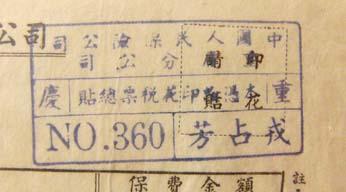 公司
中國人民保險公司
分公司
重慶
印花稅票總貼
NO.360
戎占芳
保費金額
註